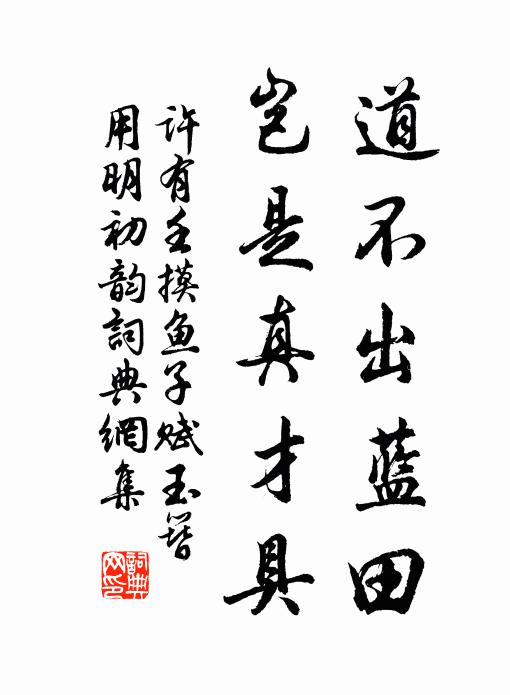 道不出藍田
豈是真才具
許有壬摸鱼子赋玉簪
用明初韵詞典網集
詞典网印